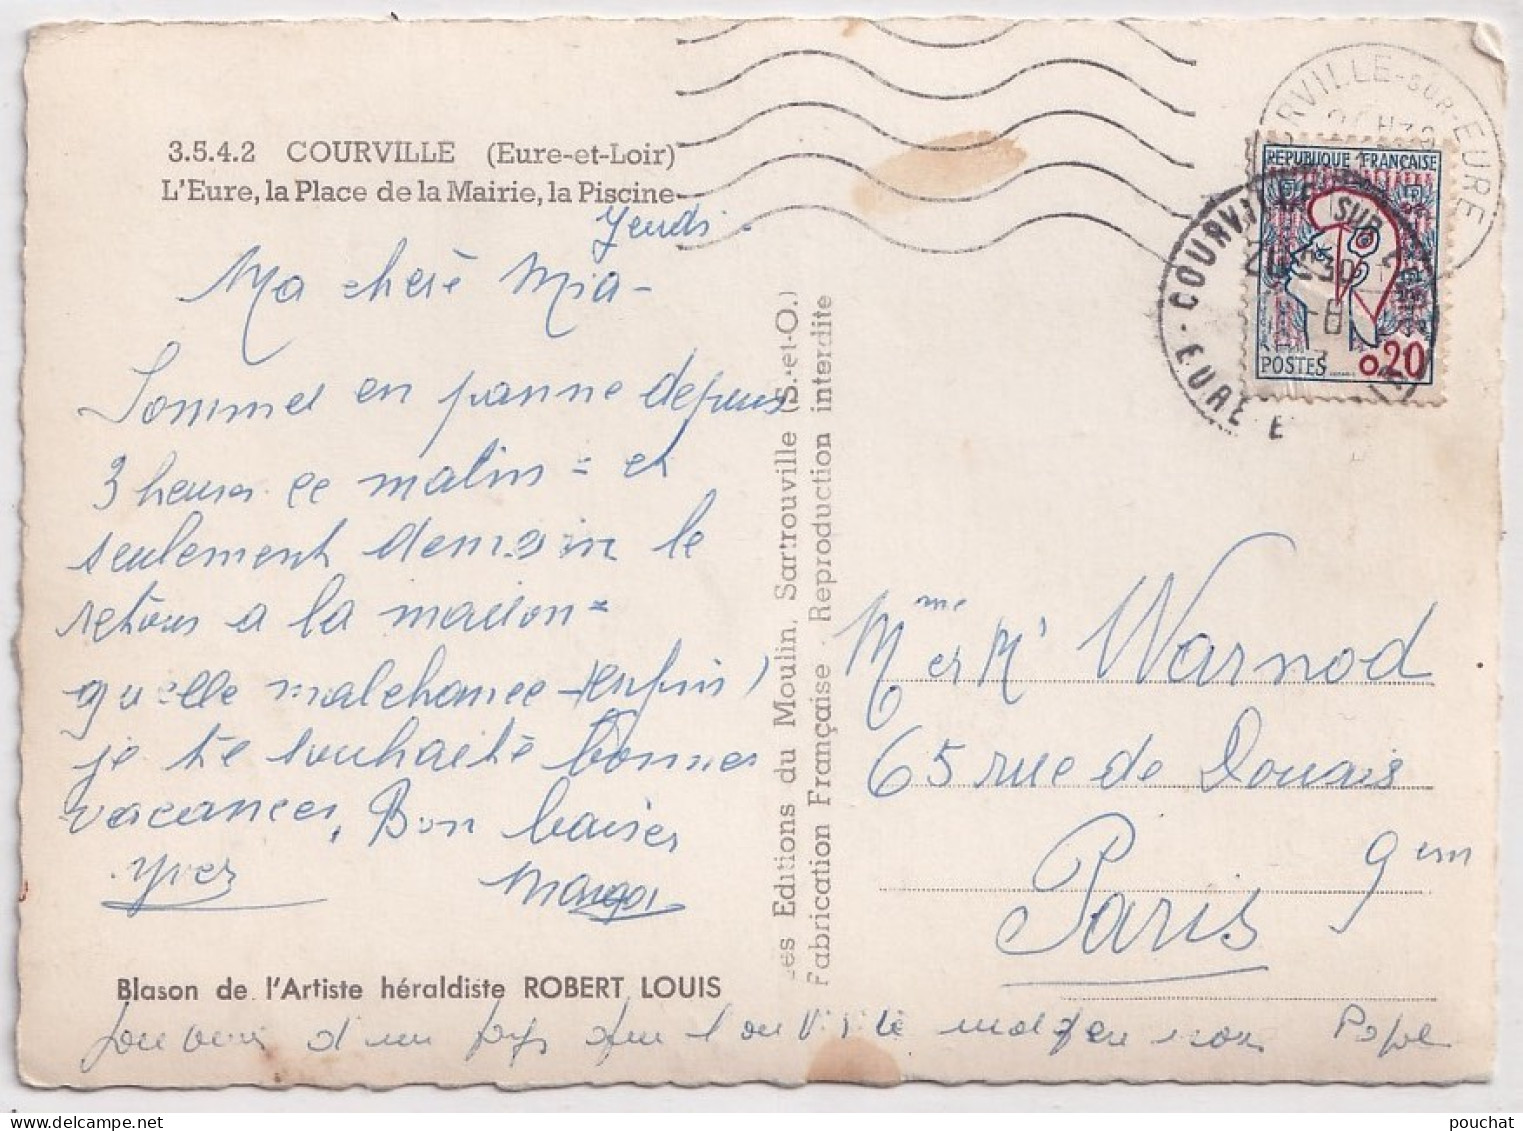 3.5.4.2 COURVILLE (Eure-et-Loir)
L'Eure, la Place de la Mairie, la Piscine
Jeudi.
Ma chère Mia-
Sommes en panne depuis
3 heures ce matin = et
seulement demain le
retour a la maison =
quelle malchance - enfin )
je te souhaite bonnes
vacances. Bon baiser
Yves Margot
Blason de l'Artiste héraldiste ROBERT LOUIS
d'un pays que l'on visite Popol
Les Editions du Moulin, Sartrouville (S.-et-O.)
Fabrication Française - Reproduction interdite
COURVILLE-SUR-EURE
REPUBLIQUE FRANÇAISE
POSTES 0,20
COURVILLE SUR EURE
EURE E
Mme et Mr Warnod
65 rue de Douais
Paris 9em
pouchat